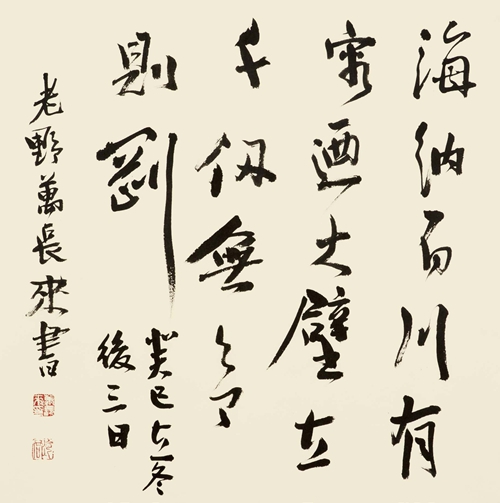 海納百川有
容迺大壁立
千仞無欲
則剛
癸巳立冬
後三日
老野萬長來書